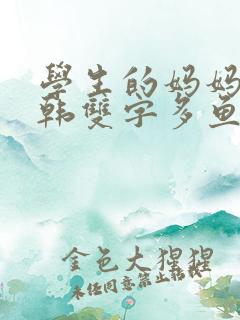 學生的妈妈
韩雙字多鱼
金色大猩猩
未经同意禁止转载